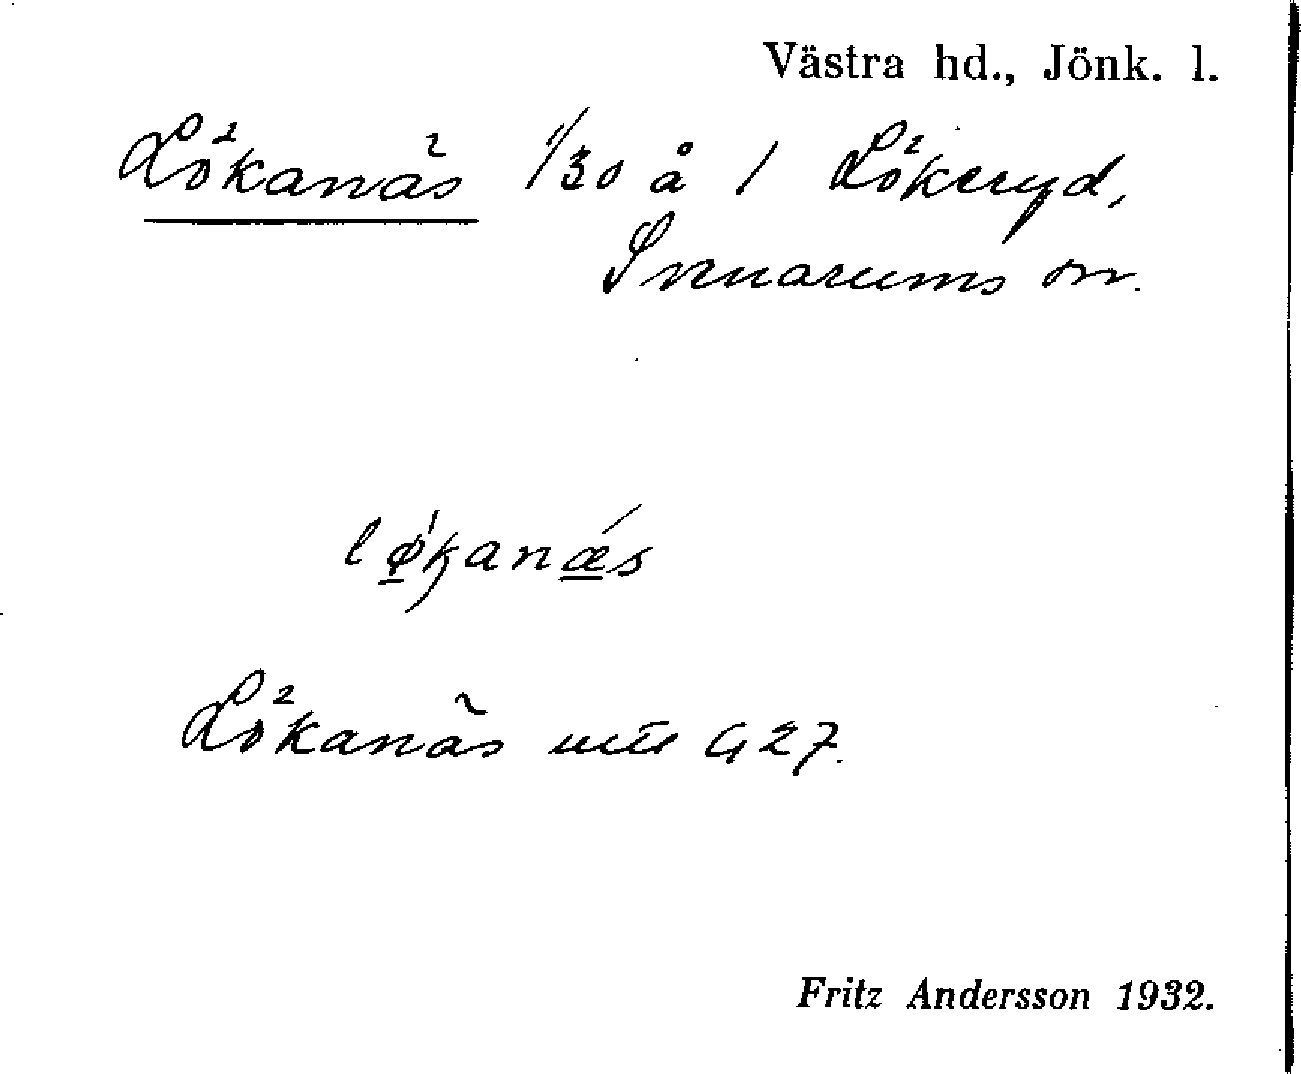 Västra hd., Jönk. l.
Lökanäs 1/30 å 1 Lökeryd,
Svenarums sn.
løkanæs
Lökanäs utr G 27.
Fritz Andersson 1932.